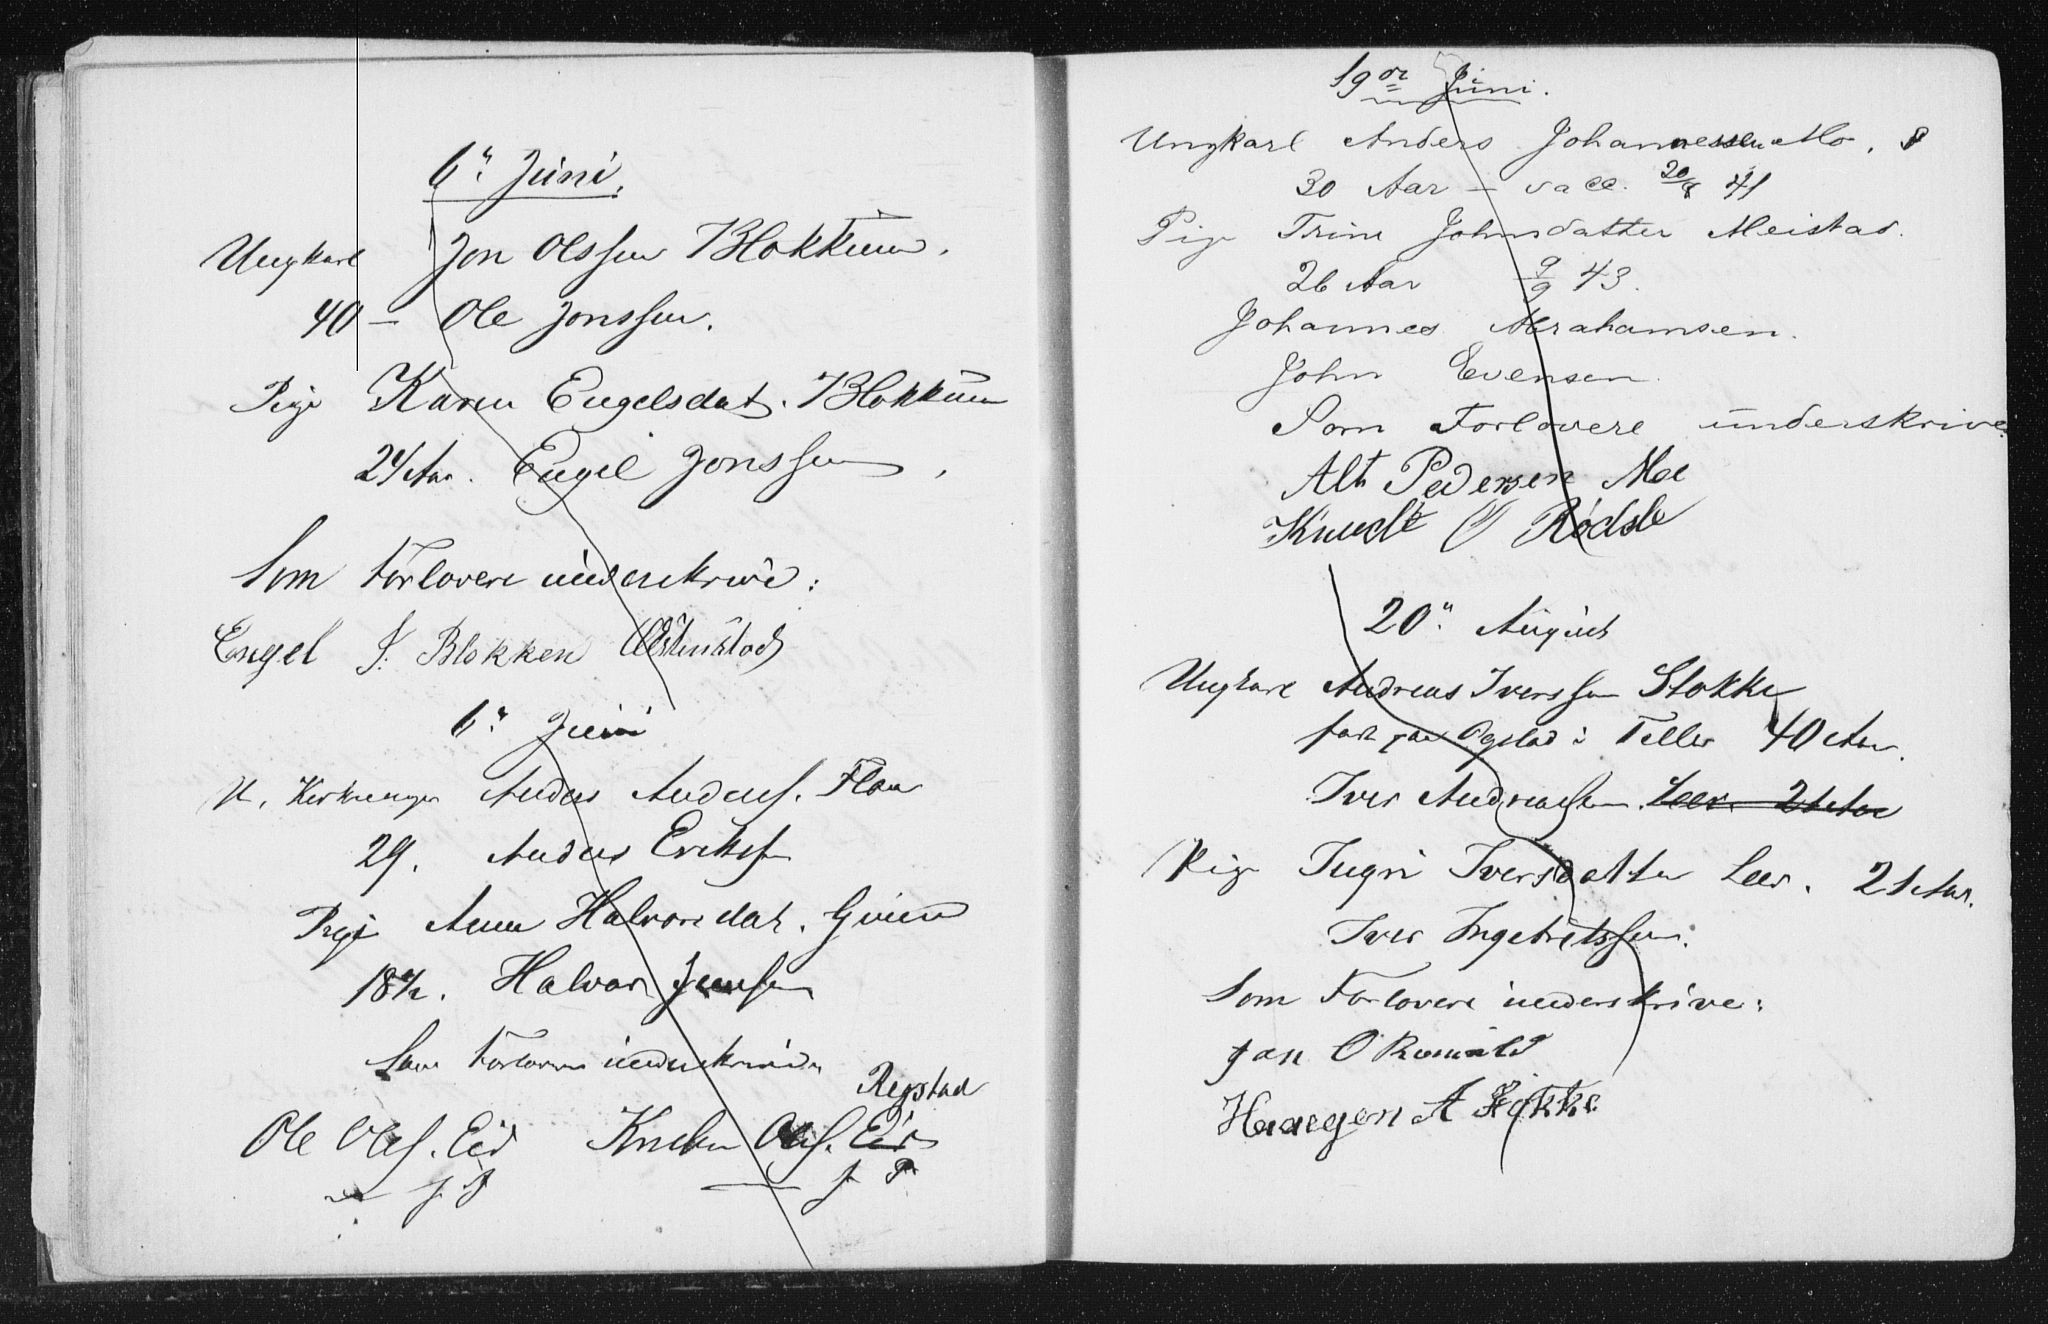 6te Juni.
Ungkarl Jon Olssen Blokkum.
40 — Ole Jonssen.
Pige Karen Engelsdat. Blokkum
24 Aar. Engel Jonssen,
Som Forlovere underskrive:
Engel J: Blokken
6te Juni
U. Anders Anders. Flaa
29. Anders Eriks
Pige Anne Halvorsdat.
18½. Halvor Jensen
Som Forlovere underskrive
Ole Ols. Eid Ols. Eid
19de Juni.
Ungkarl Anders Johannessen Mo.
30 Aar — vacc. 20/8 41
Pige Trine Johnsdatter Meistad.
26 Aar 9/9 43.
Johannes Abrahamsen.
John Evensen.
Som Forlovere underskrive
Pedersen Moe
Knudt O Rødsle
20de August
Ungkarl Andreas Iverssen Stokke
40 Aar.
Iver Andreassen Leer 21 Aar
Pige Ingri Iversdatter Leer. 21 Aar.
Iver Ingebrigtssen.
Som Forlovere underskrive:
Jon O
A Stokke